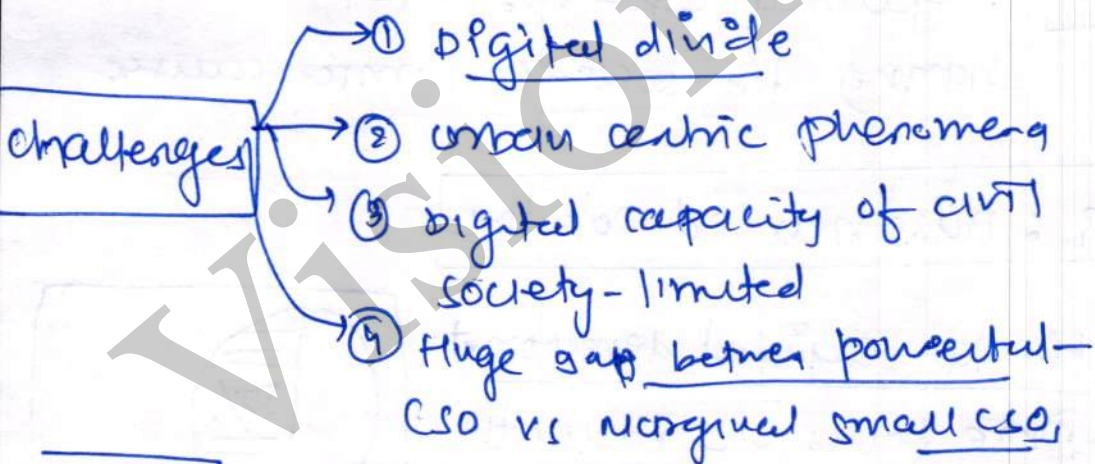 ① Digital divide
challenges
② urban centric phenomena
③ Digital capacity of civil
society - limited
④ Huge gap between powerful -
CSO vs marginal small CSO,
Vision